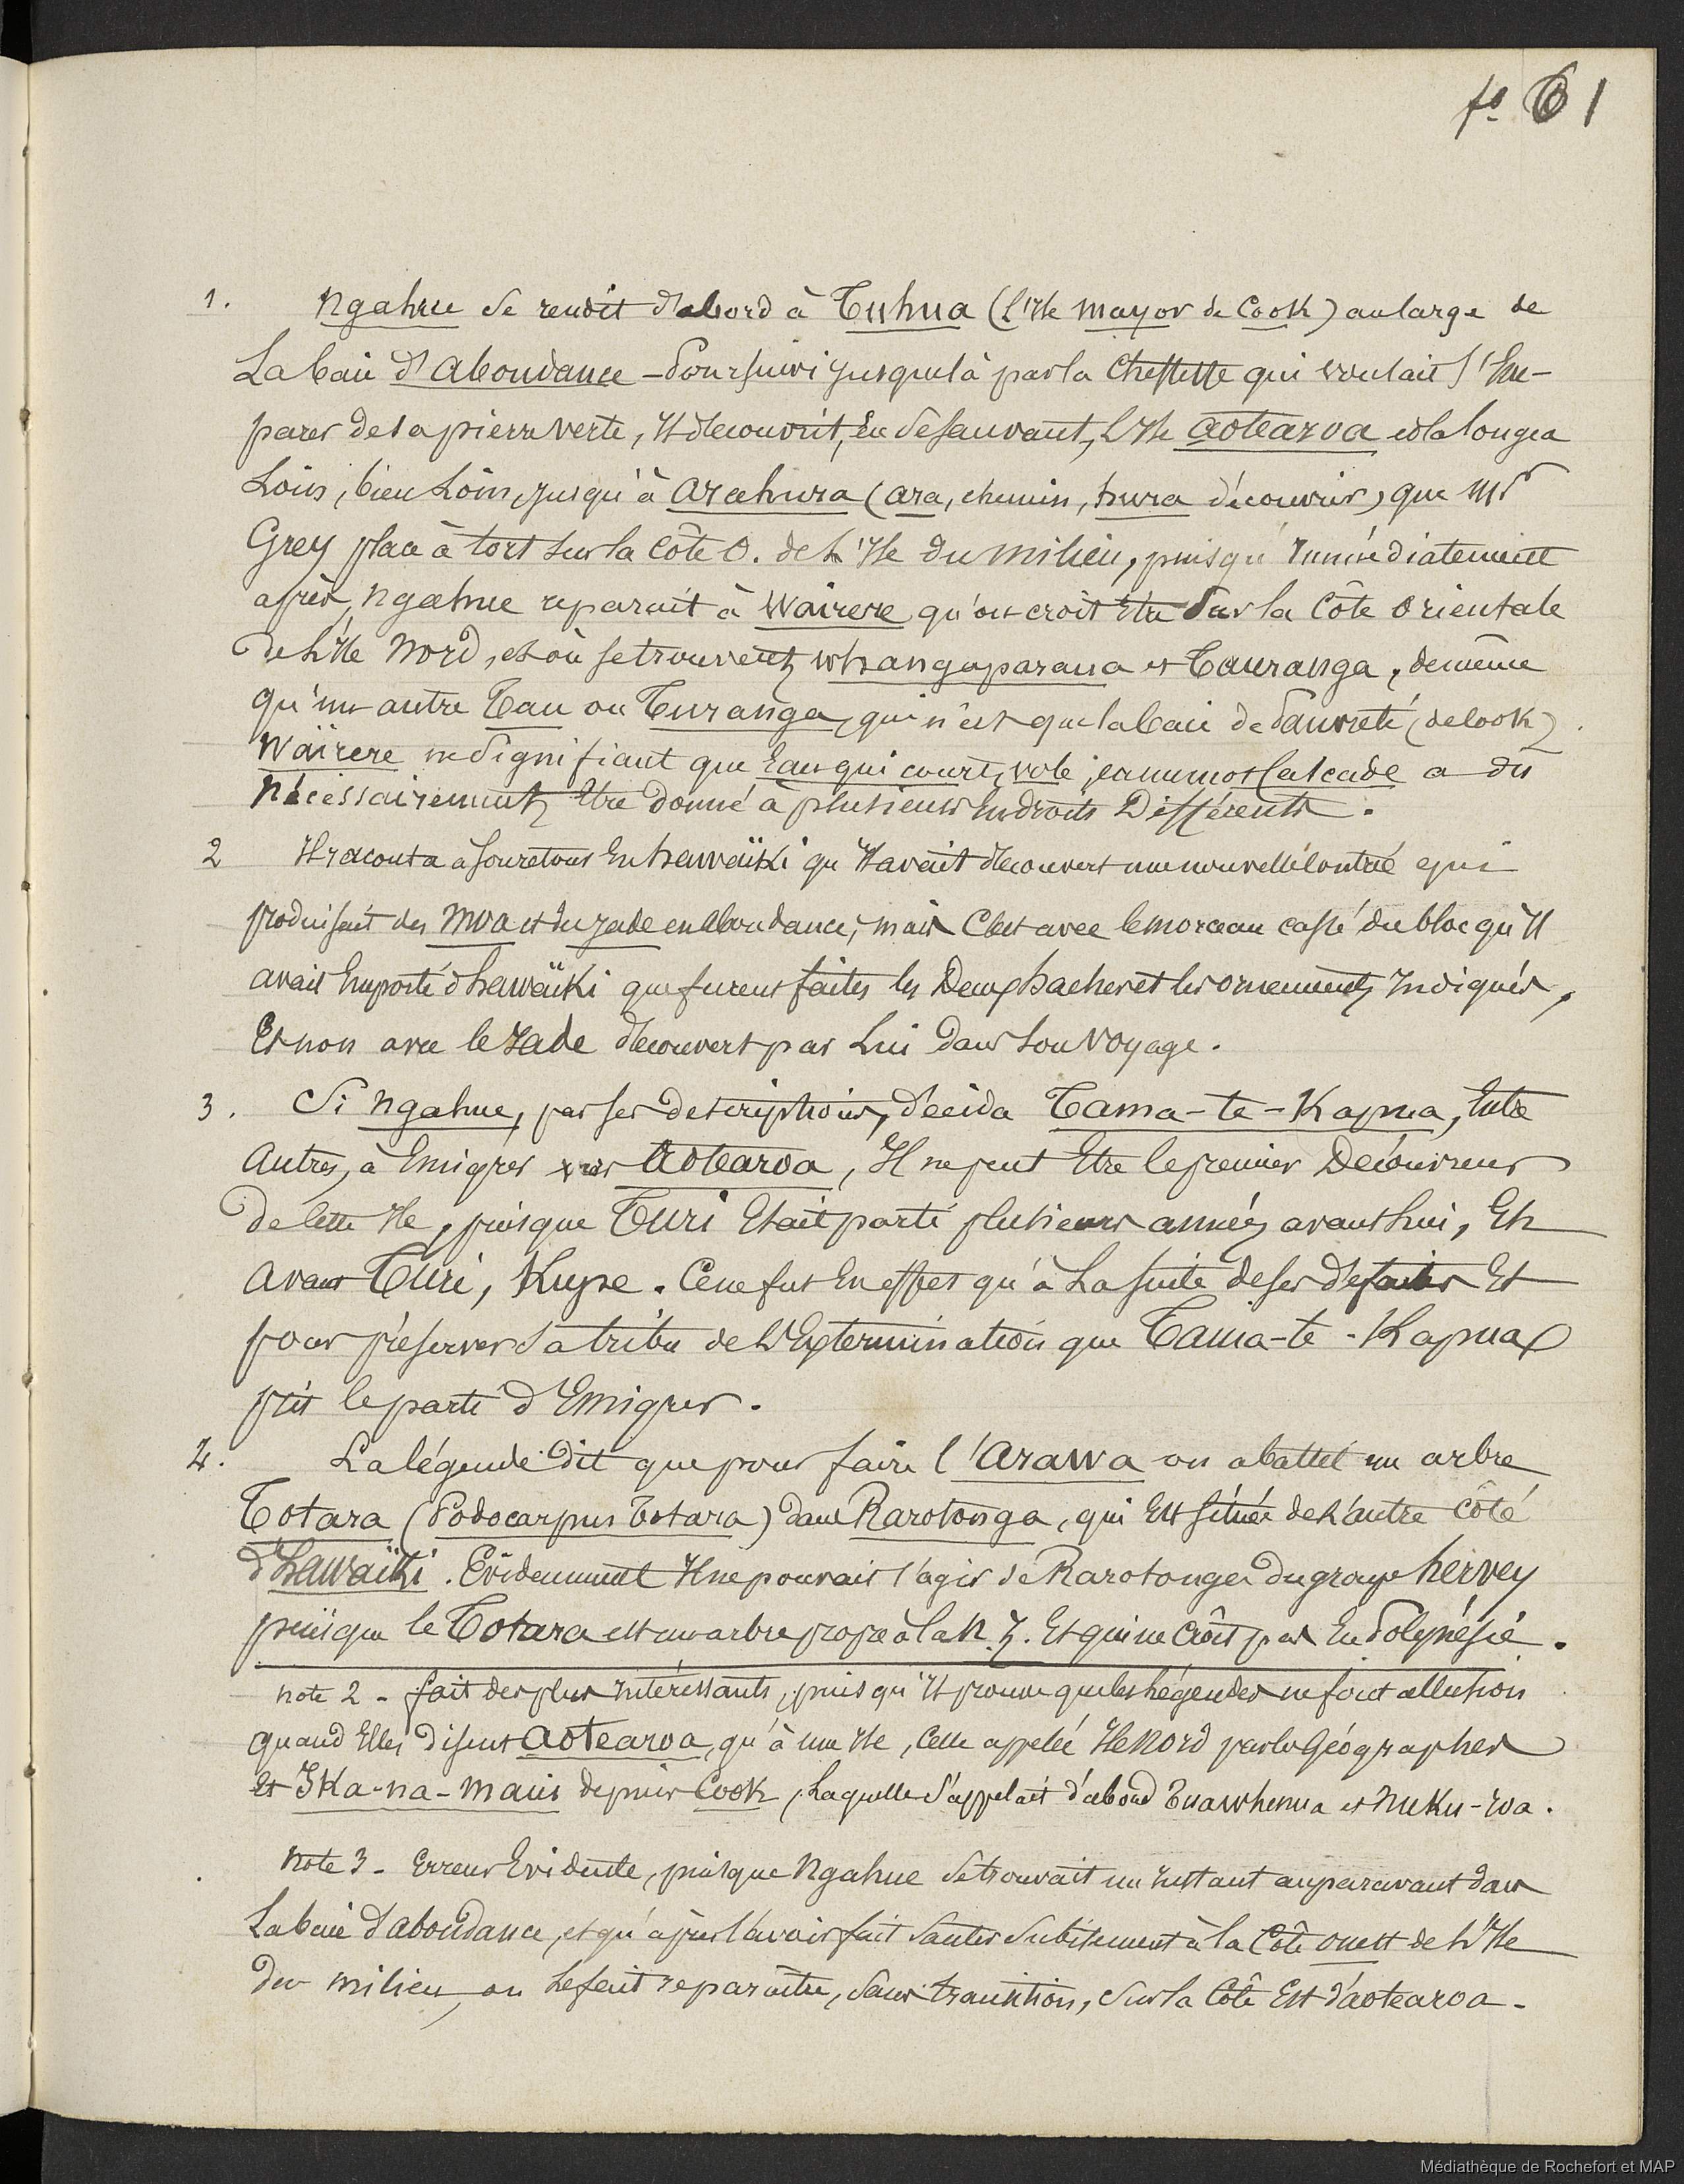 fo 61
1. Ngahue se rendit d'abord à Tuhua (l'Ile mayor de Cook) au large de
La baie d'abondance - Poursuivi jusque là par la Cheffesse qui voulait s'Em-
parer de sa pierre verte, Il découvrit, En se sauvant, L'Ile aotearoa et la longea
Loin, bien Loin, jusqu'à arahura (ara, chemin, hura découvrir) que Mr
Grey place à tort sur la Côte O. de L'Ile du milieu, puisqu'Immédiatement
après, ngahue reparait à Wairere, qu'on croit être Sur la Côte Orientale
de L'Ile Nord, et où se trouvent whangaparaua et Tauranga, de même
qu'un autre Tau ou Turanga, qui n'est que la baie de Pauvreté (de Cook)
Waïrere ne Signifiant que Eau qui court, vole, en un mot Cascade a du
Nécessairement Etre donné à plusieurs Endroits Différents.
2 Il raconta à son retour En hawaïki qu'Il avait découvert une nouvelle Contrée qui
produisait des moa et du jade en abondance; mais C'est avec le morceau cassé du bloc qu'Il
avait Emporté d'hawaïki que furent faites les Deux haches et les ornements Indiqués,
Et non avec le Jade découvert par Lui dans Son Voyage.
3. Si ngahue, par ses descriptions, décida Tama-te-Kapua, Entre
Autres, à Emigrer vers Aotearoa, Il ne peut Etre le premier Découvreur
de Cette Ile, puisque Turi Etait parti plusieurs années avant Lui, Et
avant Turi, Kupe. Ce ne fut En effet qu'à La suite de ses défaites Et
pour préserver Sa tribu de L'Extermination que Tama-te-Kapua
prit le parti d'Emigrer.
4. La légende dit que pour faire l'arawa on abattit un arbre
Totara (Podocarpus Totara) dans Rarotonga, qui Est située de L'autre côté
d'hawaïki. Evidemment Il ne pouvait s'agir de Rarotonga du groupe hervey
puisque le Totara est un arbre propre à la N. Z. Et qui ne Croît pas En Polynésie.
note 2 - fait des plus Intéressants, puisqu'Il prouve que les Légendes ne font allusion
quand Elles disent aotearoa, qu'à une Ile, Celle appelée Ile Nord par les Géographes
et Ika-na-maui depuis Cook, Laquelle S'appelait d'abord Tuawhenua et nuku-roa.
Note 3 - Erreur Evidente, puisque Ngahue Se trouvait un Instant auparavant dans
La baie d'abondance, et qu'après l'avoir fait Sauter Subitement à la Côte ouest de L'Ile
du milieu, on Le fait reparaître, Sans transition, Sur la Côte Est d'aotearoa.
Médiathèque de Rochefort et MAP